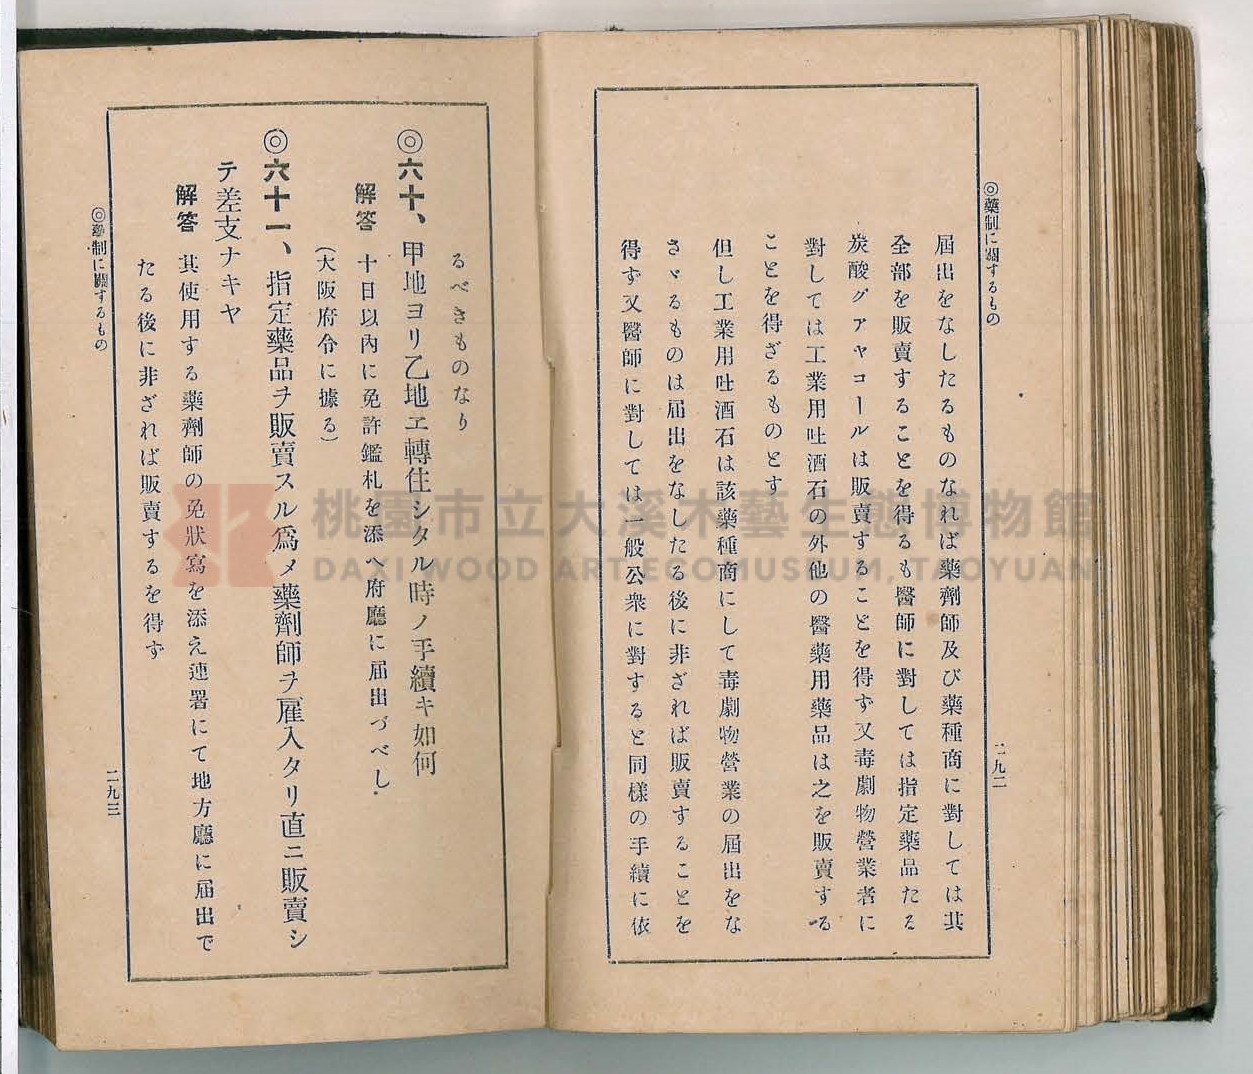 ◎藥制に關するもの
二九二
屆出をなしたるものなれば藥劑師及び藥種商に對しては其
全部を販賣することを得るも醫師に對しては指定藥品たる
炭酸グァヤコールは販賣することを得ず又毒劇物營業者に
對しては工業用吐酒石の外他の醫藥用藥品は之を販賣する
ことを得ざるものとす
但し工業用吐酒石は該藥種商にして毒劇物營業の屆出をな
さゞるものは屆出をなしたる後に非ざれば販賣することを
得ず又醫師に對しては一般公衆に對すると同樣の手續に依
るべきものなり
◎六十、甲地ヨリ乙地ヱ轉住シタル時ノ手續キ如何
解答 十日以內に免許鑑札を添へ府廳に屆出づべし
(大阪府令に據る)
◎六十一、指定藥品ヲ販賣スル爲メ藥劑師ヲ雇入タリ直ニ販賣シ
テ差支ナキヤ
解答 其使用する藥劑師の免狀寫を添え連署にて地方廳に屆出で
たる後に非ざれば販賣するを得ず
◎藥制に關するもの
二九三
桃園市立大溪木藝生態博物館
DAXI WOOD ART ECOMUSEUM, TAOYUAN